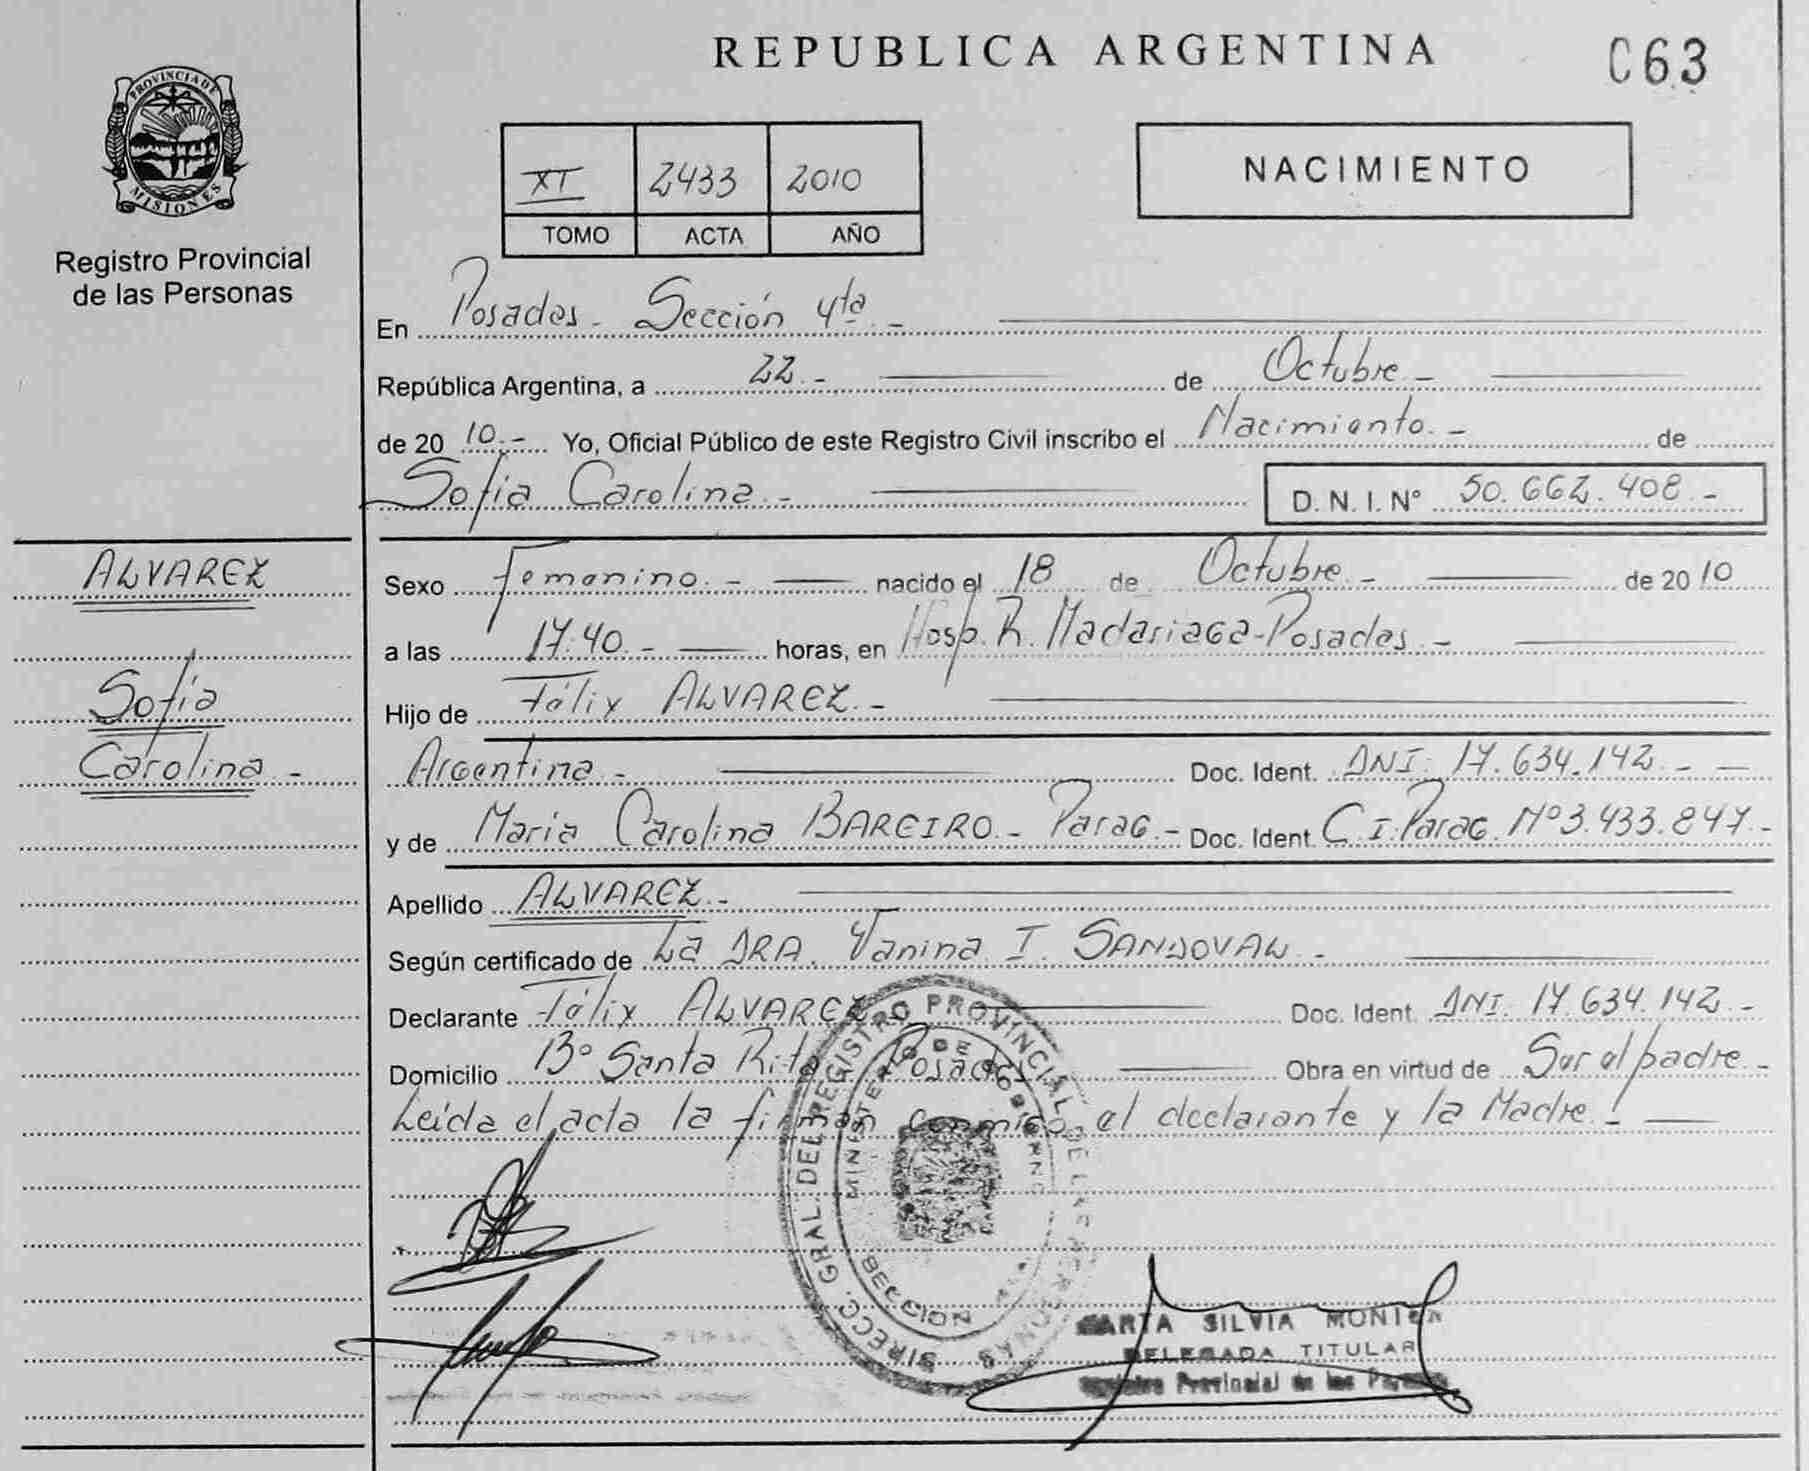 REPUBLICA ARGENTINA
C63
PROVINCIA DE
MISIONES
Registro Provincial
de las Personas
NACIMIENTO
XI 2433 2010
TOMO ACTA AÑO
En Posadas - Sección 4ta. -
República Argentina, a 22. - de Octubre -
de 20 10. - Yo, Oficial Público de este Registro Civil inscribo el Nacimiento. - de
Sofía Carolina. - D. N. I. N° 50.662.408. -
ALVAREZ
Sofía
Carolina -
Sexo Femenino. - nacido el 18 de Octubre. - de 20 10
a las 17:40. - horas, en Hosp. R. Madariaga - Posadas. -
Hijo de Félix ALVAREZ. -
Argentina - Doc. Ident. DNI. 17.634.142. - -
y de María Carolina BAREIRO. - Parag. - Doc. Ident. C.I. Parag. Nº 3.433.847. -
Apellido ALVAREZ. -
Según certificado de La DRA. Vanina I. SANDOVAL. -
Declarante Félix ALVAREZ Doc. Ident. DNI. 17.634.142. -
Domicilio Bº Santa Rita Posadas Obra en virtud de Ser el padre. -
Leída el acta la firman conmigo el declarante y la Madre. -
DIRECC. GRAL. DEL REGISTRO PROVINCIAL DE LAS PERSONAS
MINISTERIO DE GOBIERNO
MARTA SILVIA
DELEGADA TITULAR
Registro Provincial de las Personas